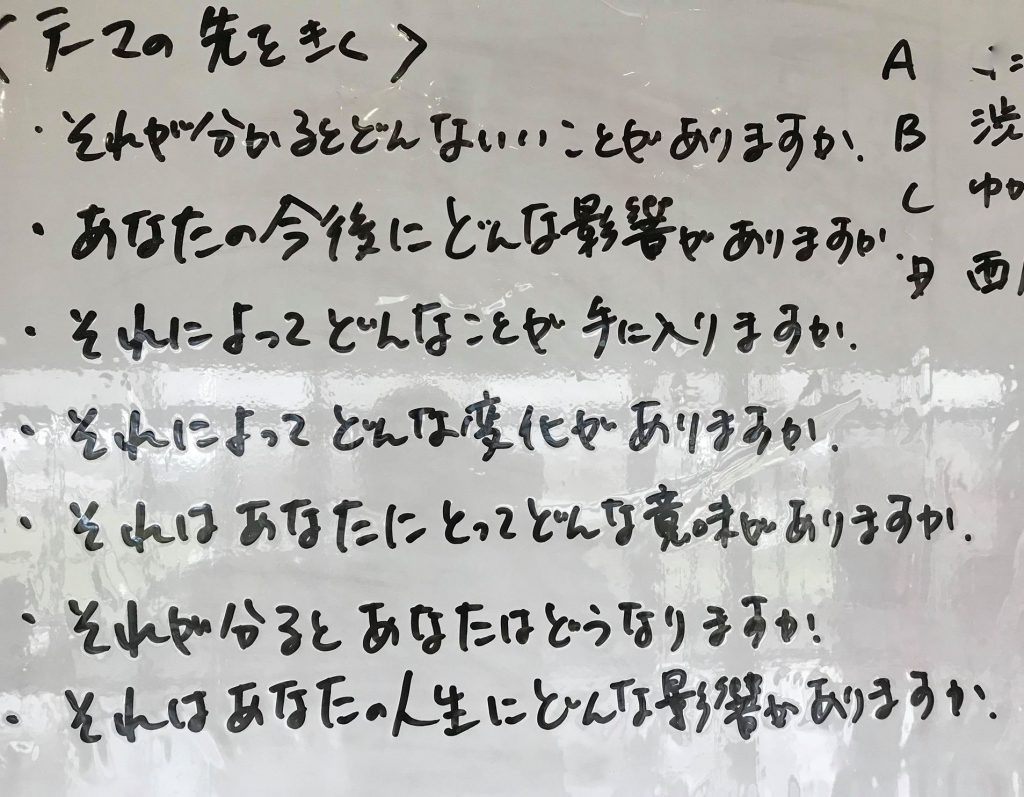 〈テーマの先をきく〉
・それが分かるとどんないいことがありますか.
・あなたの今後にどんな影響がありますか.
・それによってどんなことが手に入りますか.
・それによってどんな変化がありますか.
・それはあなたにとってどんな意味がありますか.
・それが分るとあなたはどうなりますか.
・それはあなたの人生にどんな影響がありますか.
A
B 渋
C ゆか
D 西